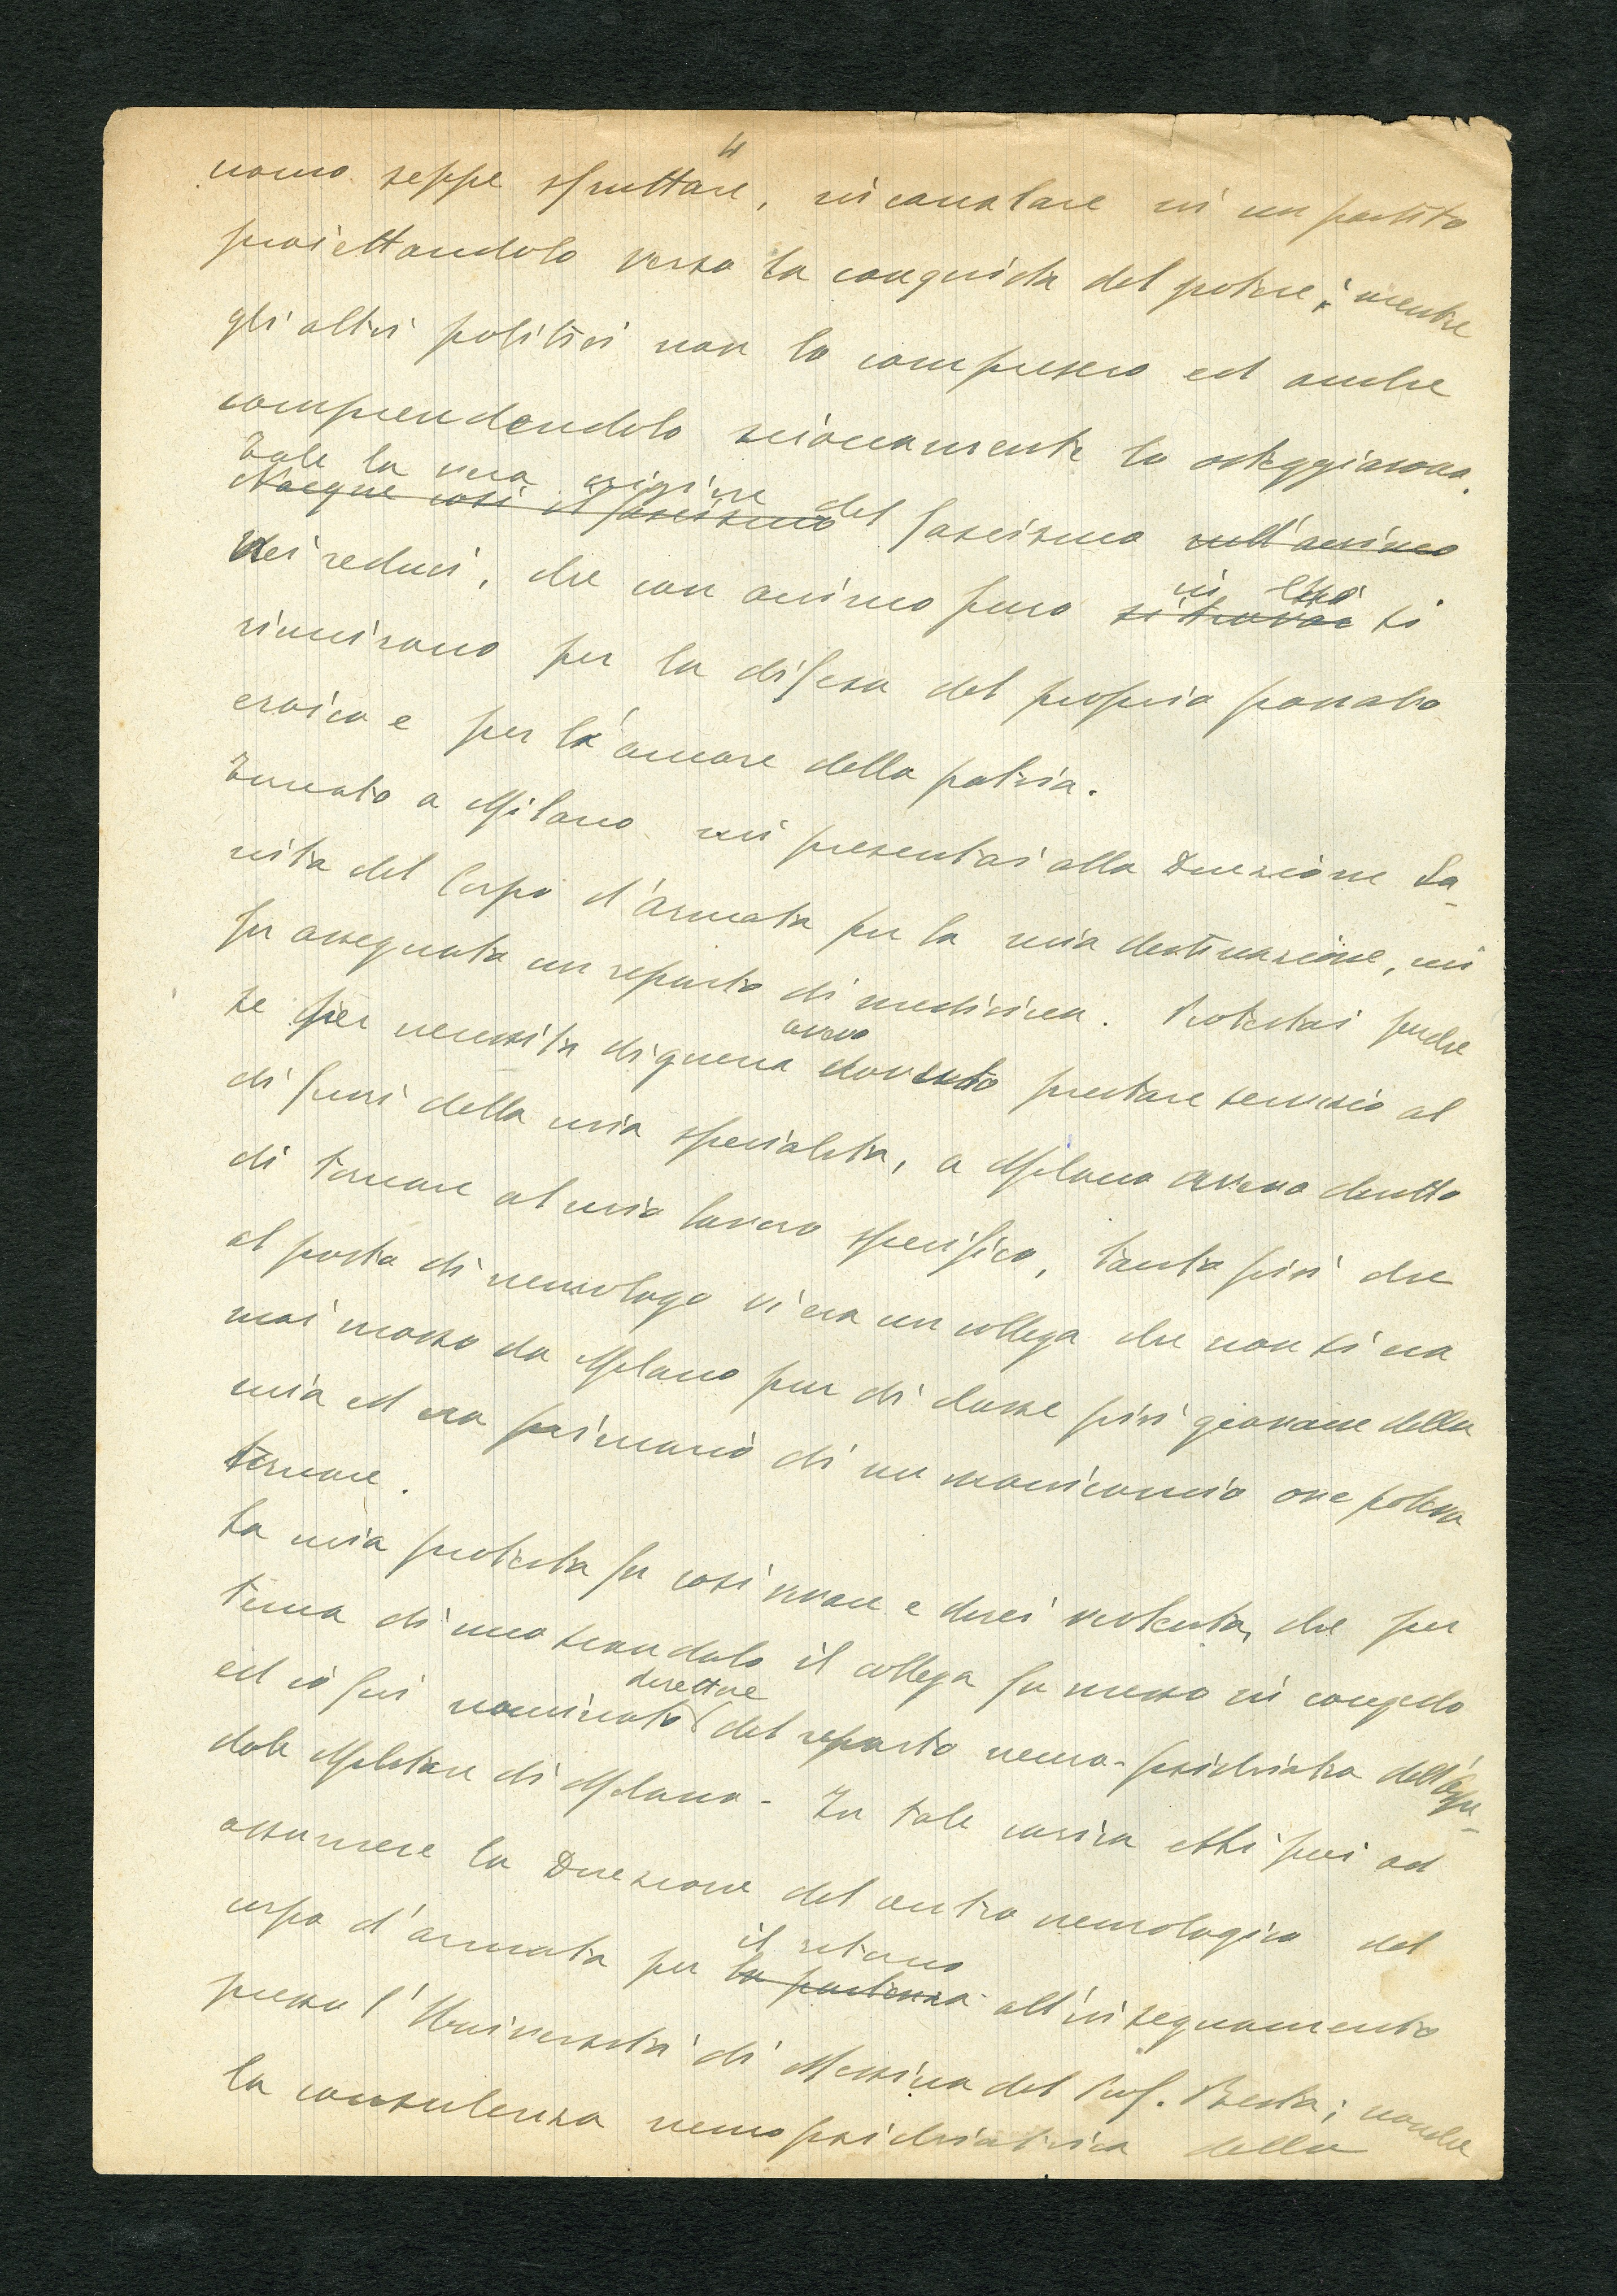 4
uomo seppe sfruttare, incanalare in un partito
proiettandolo verso la conquista del potere; mentre
gli altri politici non lo compresero ed anche
comprendendolo scioccamente lo osteggiarono.
Tale la vera origine del fascismo
Nacque così il fascismo sull'animo
dei reduci, che con animo puro in essi si
riunirono per la difesa del proprio passato
eroico e per l'amore della patria.
Tornato a Milano mi presentai alla Direzione Sa-
nità del Corpo d'armata per la mia destinazione, mi
fu assegnato un reparto di medicina. Protestai perchè
se per necessità di guerra avevo dovuto prestare servizio al
di fuori della mia specialità, a Milano avevo diritto
di tornare al mio lavoro specifico, tanto più che
al posto di neurologo vi era un collega che non si era
mai mosso da Milano pur di classe più giovane della
mia ed era primario di un manicomio ove poteva
tornare.
La mia protesta fu così vivace e direi violenta, che per
tema di uno scandalo il collega fu messo in congedo
ed io fui nominato direttore del reparto neuro-psichiatra dell'Ospe-
dale Militare di Milano - In tale carica ebbi poi ad
assumere la Direzione del centro neurologico del
corpo d'armata per il ritorno la partenza all'insegnamento
presso l'Università di Messina del Prof. Besta; nonchè
la consulenza neuropsichiatrica della